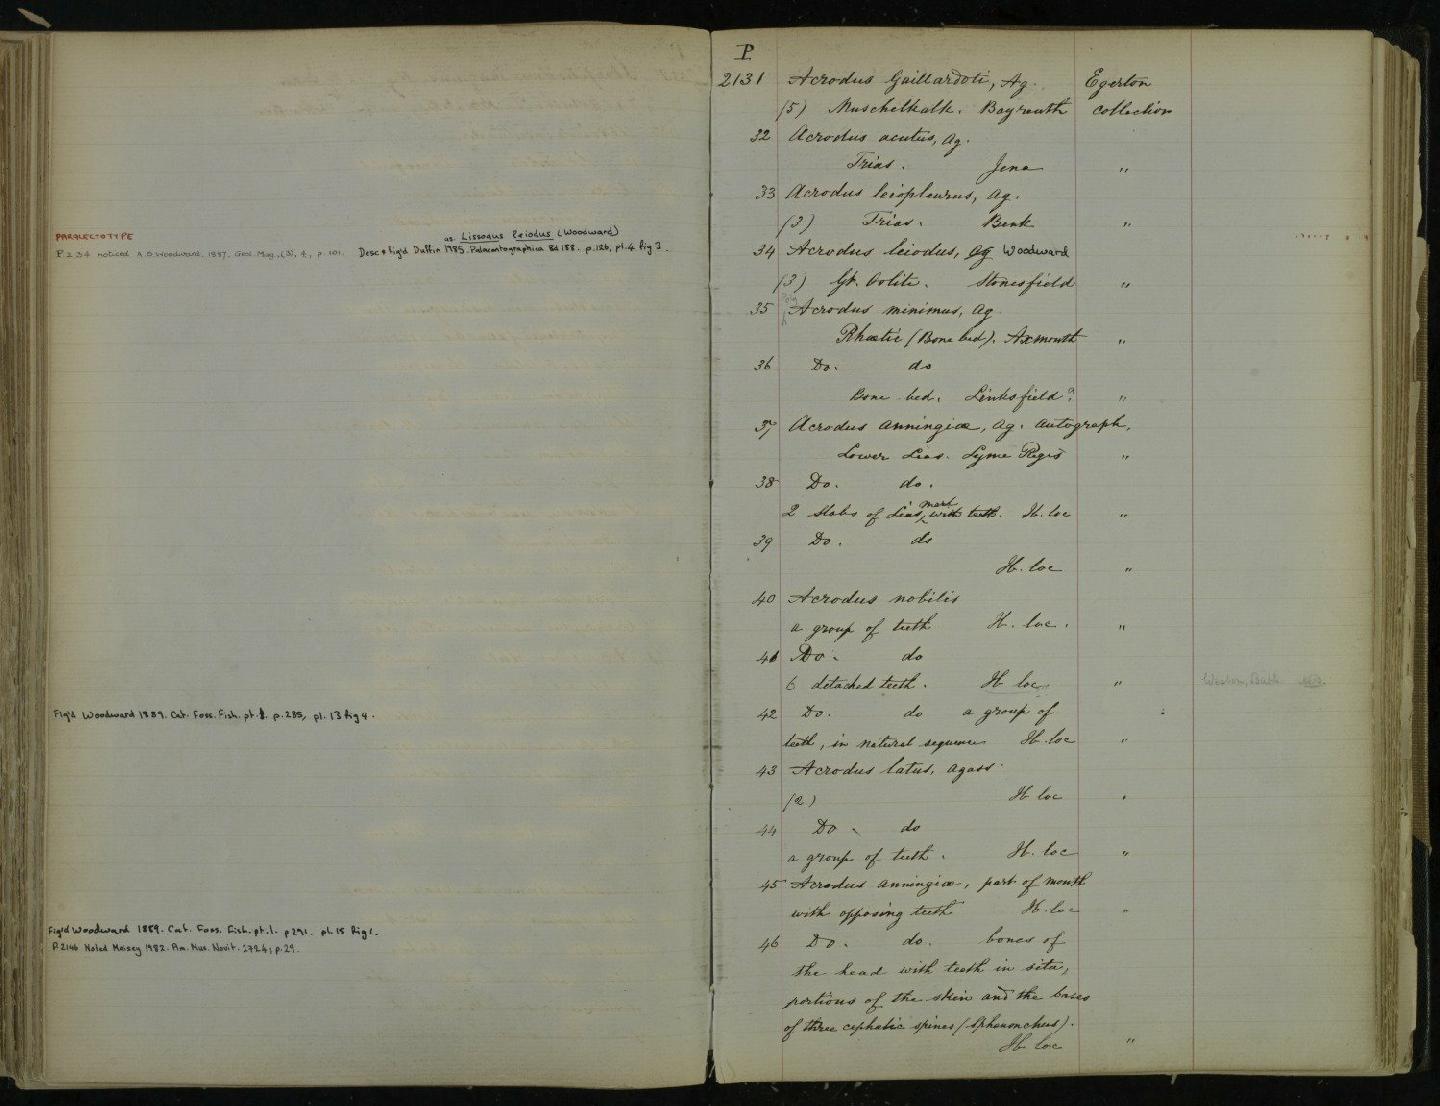 PARALECTOTYPE
as Lissodus leiodus (Woodward)
P 2234 noticed A.S. Woodward. 1887. Geol. Mag., (3), 4, p. 101. Desc & fig'd Duffin 1985. Palaeontographica Bd 188. p. 126, pl. 4 fig 3.
Fig'd Woodward 1889. Cat. Foss. Fish. pt 1. p. 285, pl. 13 fig 4.
Fig'd Woodward 1889. Cat. Foss. Fish. pt. 1. p 291. pl. 15 fig 1.
P. 2146 Noted Maisey 1982. Am. Mus. Novit. 2724; p. 29.
P
2131 Acrodus Gaillardoti, Ag. Egerton
(5) Muschelkalk. Bayreuth Collection
32 Acrodus acutus, Ag.
Trias. Jena "
33 Acrodus leiopleurus, Ag.
(3) Trias. Benk "
34 Acrodus leiodus, Ag Woodward
(3) Gt. Oolite. Stonesfield "
35 Acrodus minimus, Ag
Rhætic (Bone bed). Axmouth "
36 Do. do
Bone bed. Linksfield? "
37 Acrodus Anningiæ, Ag. Autograph.
Lower Lias. Lyme Regis "
38 Do. do.
2 slabs of Lias, with teeth. H. loc "
39 Do. do
H. loc "
40 Acrodus nobilis
a group of teeth H. loc. "
41 Do. do
6 detached teeth. H loc "
Weston, Bath
42 Do. do a group of
teeth, in natural sequence H. loc "
43 Acrodus latus, Agass.
(2) H loc "
44 Do. do
a group of teeth. H. loc "
45 Acrodus Anningiæ, part of mouth
with opposing teeth H. loc "
46 Do. do. bones of
the head with teeth in situ,
portions of the skin and the bases
of three cephalic spines (Sphenonchus).
H loc "